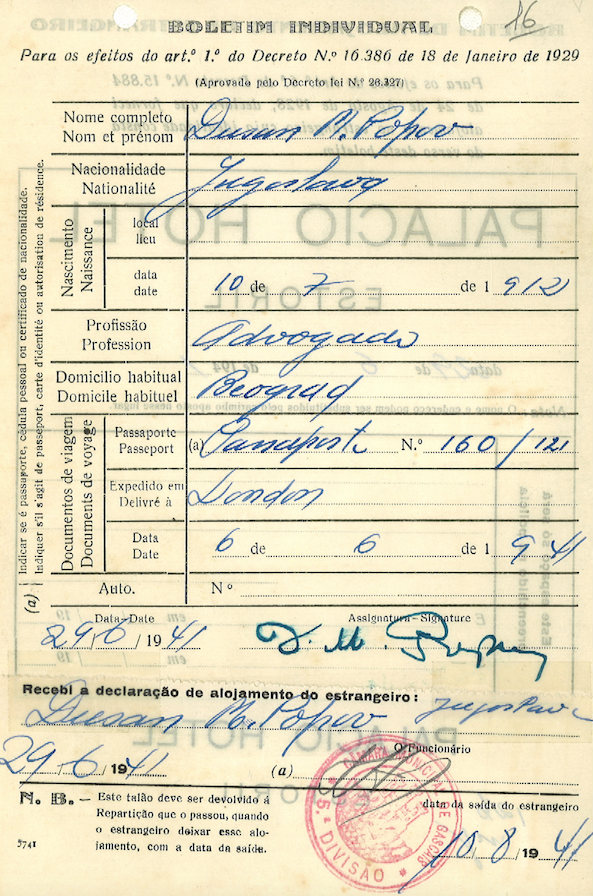 BOLETIM INDIVIDUAL
16
Para os efeitos do art.º 1.º do Decreto N.º 16.386 de 18 de Janeiro de 1929
(Aprovado pelo Decreto lei N.º 26.327)
Nome completo
Nom et prénom
Dusan M. Popov
Nacionalidade
Nationalité
Jugoslavo
Nascimento
Naissance
local
lieu
data
date
10 de 7 de 1 912
Profissão
Profession
Advogado
Domicilio habitual
Domicile habituel
Beograd
Documentos de viagem
Documents de voyage
Passaporte
Passeport
(a) Passaporte N.º 160/121
Expedido em
Delivré à
London
Data
Date
6 de 6 de 1 941
Auto.
Nº
(a) Indicar se é passaporte, cédula pessoal ou certificado de nacionalidade.
Indiquer s'il s'agit de passeport, carte d'identité ou autorisation de résidence.
Data-Date
29/6/1941
Assignatura-Signature
D. M. Popov
Recebi a declaração de alojamento do estrangeiro:
Dusan M. Popov Jugoslavo
29/6/1941
(a)
O Funcionário
CAMARA MUNICIPAL DE CASCAIS
5.ª DIVISÃO
N. B. — Este talão deve ser devolvido á
Repartição que o passou, quando
o estrangeiro deixar esse alo-
jamento, com a data da saída.
data da saída do estrangeiro
10/8/1941
5741
PALACIO HOTEL
ESTORIL
PALACIO HOTEL
ESTORIL